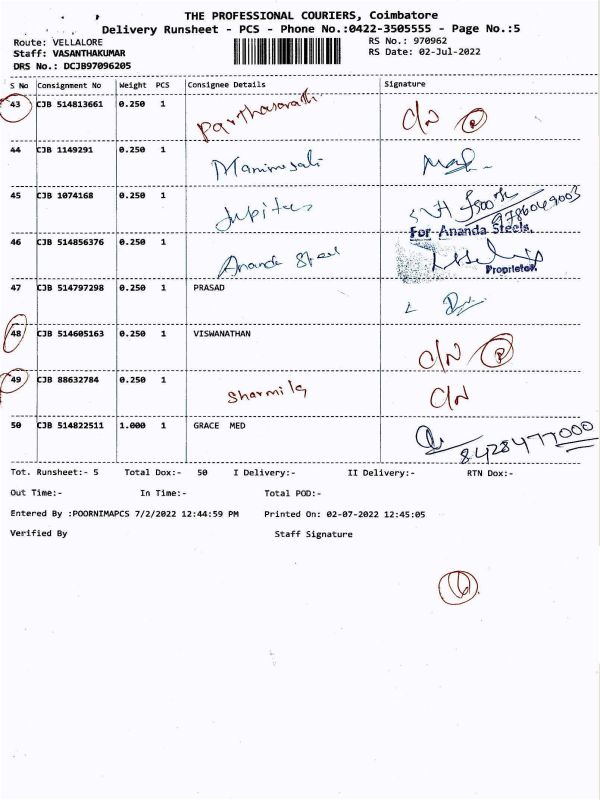 THE PROFESSIONAL COURIERS, Coimbatore
Delivery Runsheet - PCS - Phone No.:0422-3505555 - Page No.:5
Route: VELLALORE
RS No.: 970962
Staff: VASANTHAKUMAR
RS Date: 02-Jul-2022
DRS No.: DCJB97096205
S No Consignment No Weight PCS Consignee Details Signature
43 CJB 514813661 0.250 1 Parthasarathi C/N
44 CJB 1149291 0.250 1
45 CJB 1074168 0.250 1 Jupiter 9786049003
For Ananda Steels,
46 CJB 514856376 0.250 1 Ananda Steel
Proprietor.
47 CJB 514797298 0.250 1 PRASAD
48 CJB 514605163 0.250 1 VISWANATHAN C/N
49 CJB 88632784 0.250 1 Sharmila C/N
50 CJB 514822511 1.000 1 GRACE MED 8428477000
Tot. Runsheet:- 5 Total Dox:- 50 I Delivery:- II Delivery:- RTN Dox:-
Out Time:- In Time:- Total POD:-
Entered By :POORNIMAPCS 7/2/2022 12:44:59 PM Printed On: 02-07-2022 12:45:05
Verified By Staff Signature